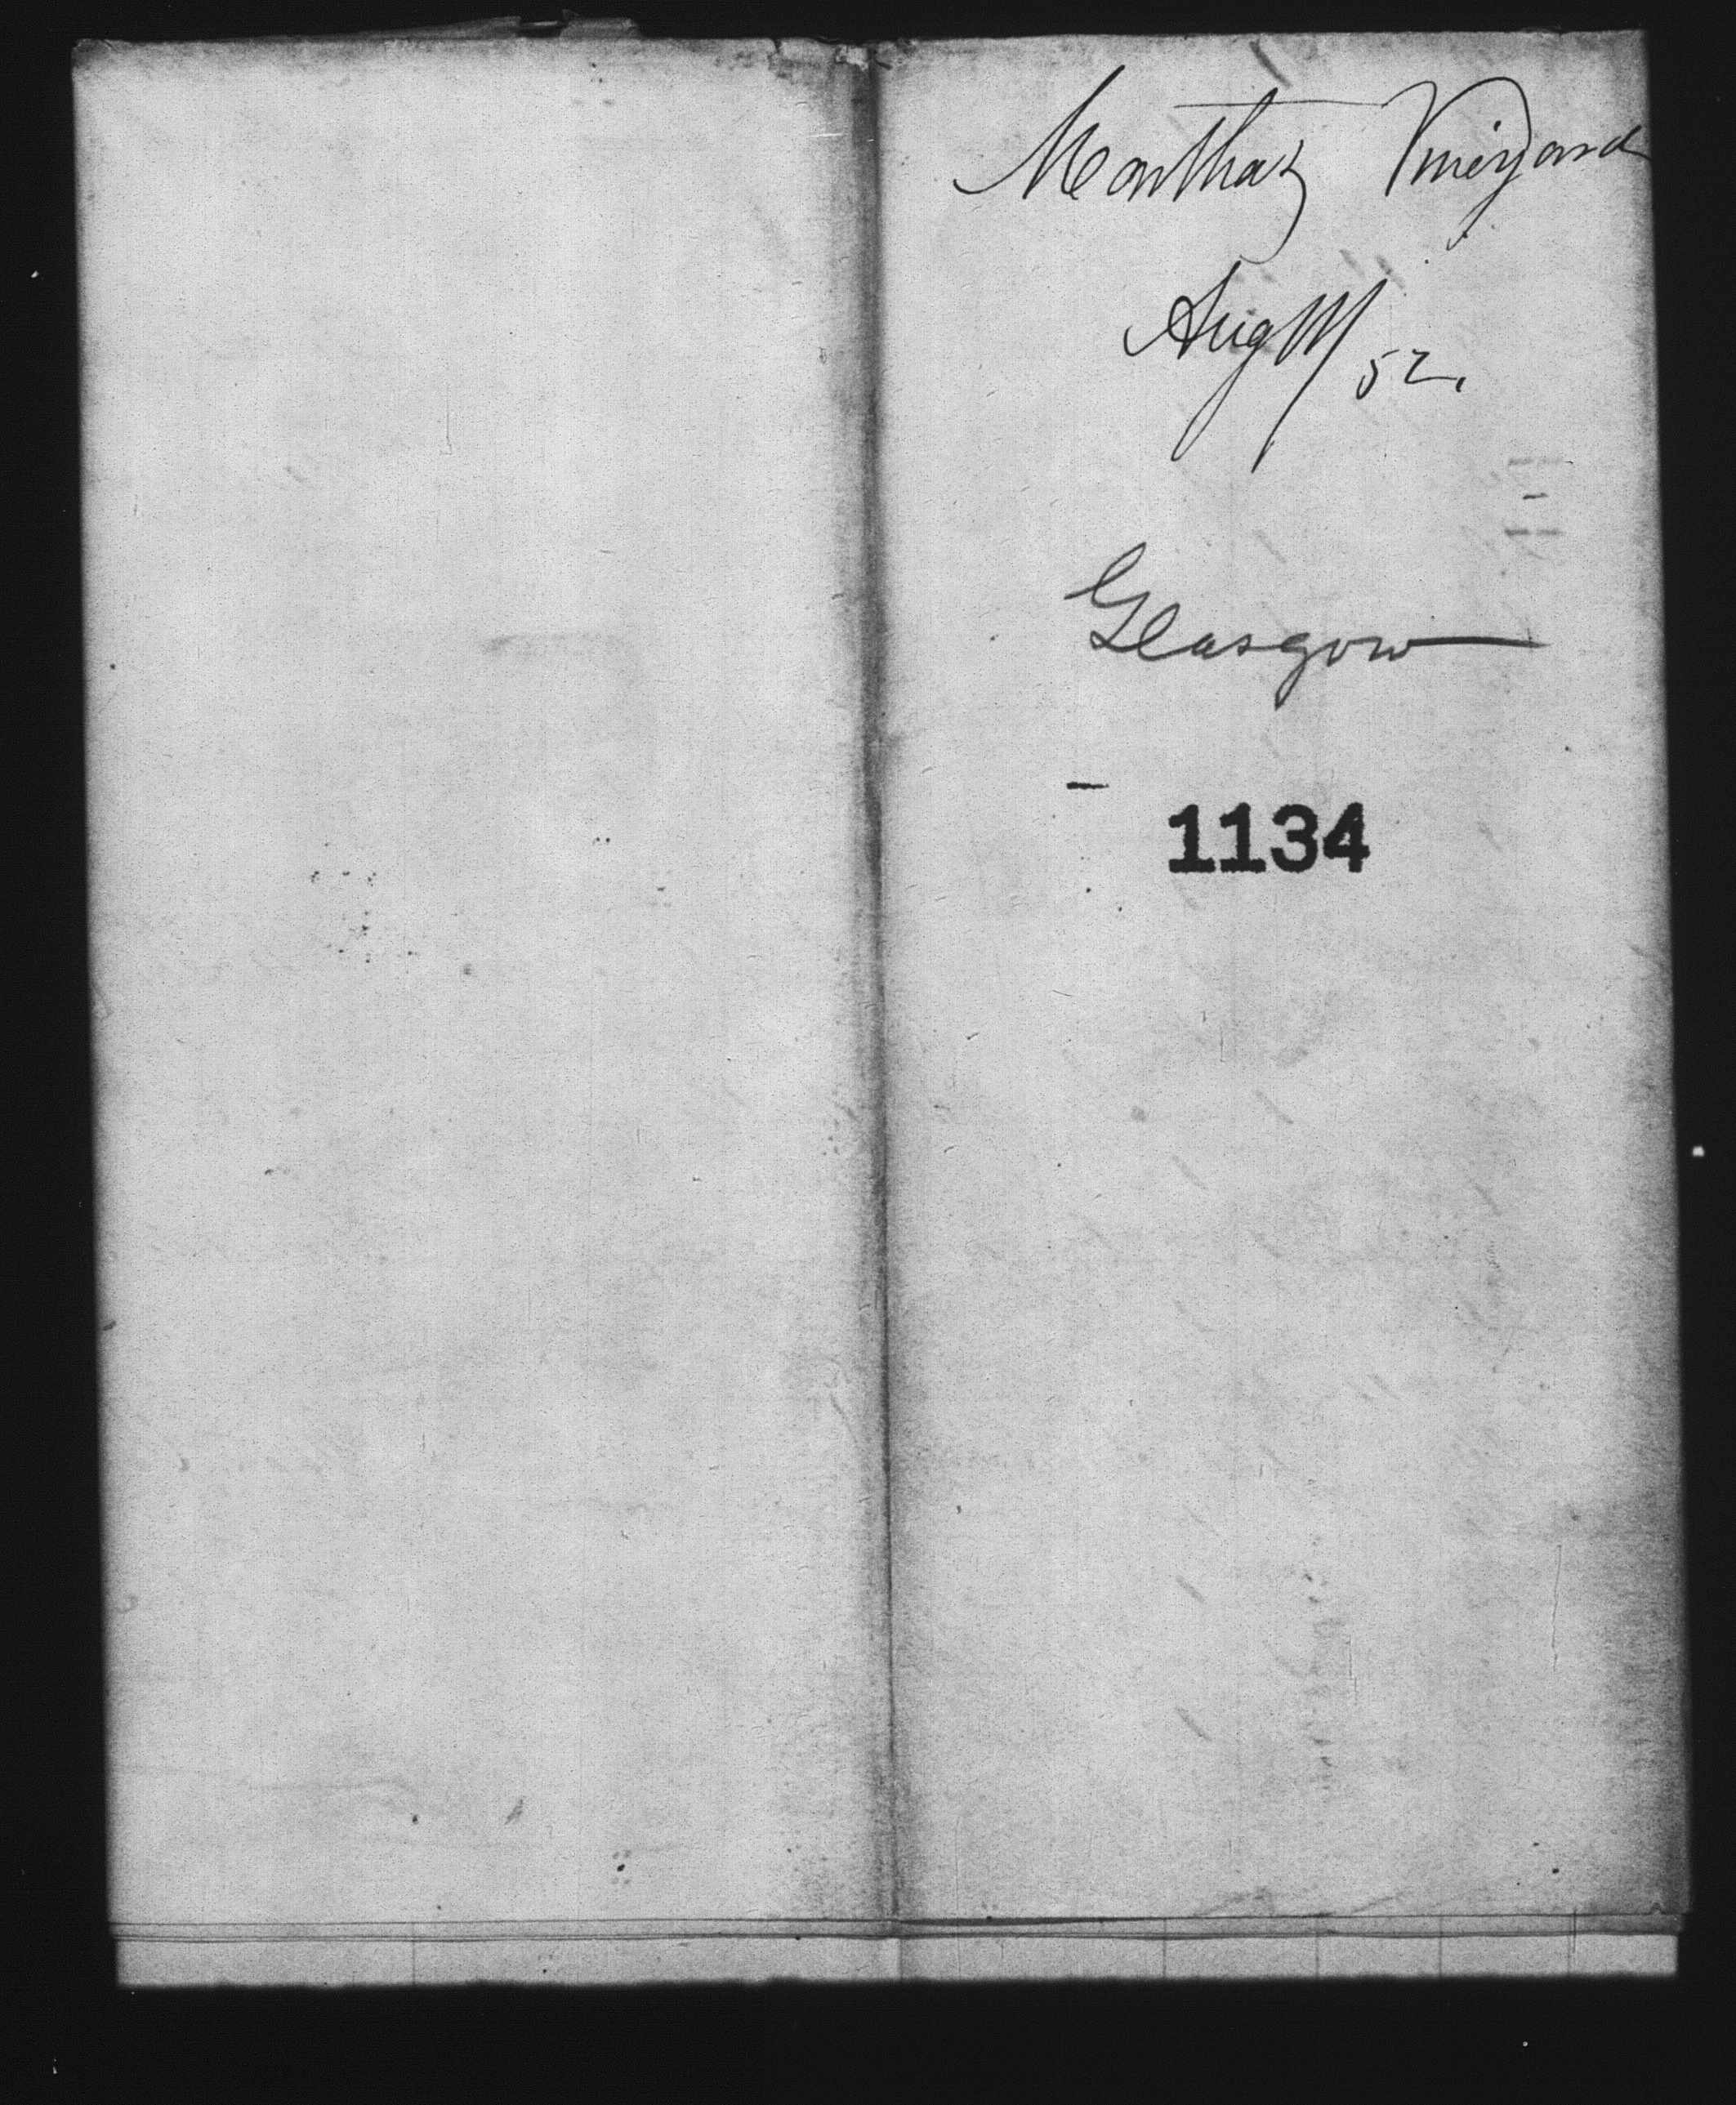 Marthas Vineyard
Aug 11/52.
Glasgow
1134